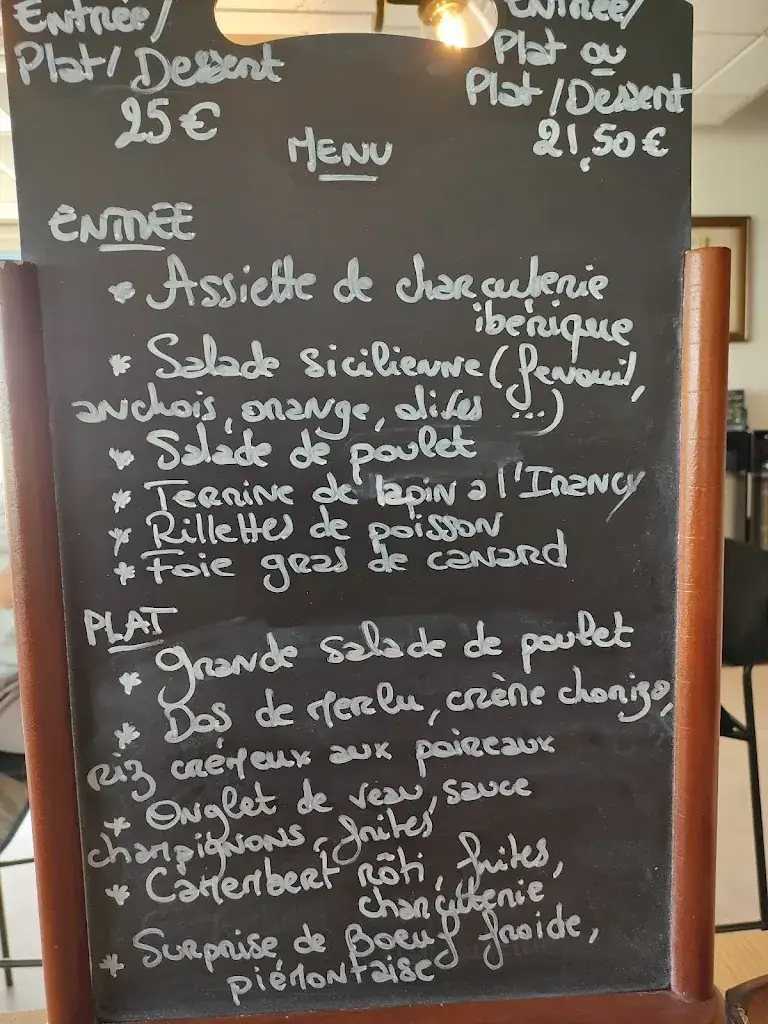 Entrée/
Plat/Dessert
25€
Entrée/
Plat ou
Plat/Dessert
21,50€
MENU
ENTRÉE
* Assiette de charcuterie
ibérique
* Salade sicilienne (fenouil,
anchois, orange, olives ...)
* Salade de poulet
* Terrine de lapin a l'Irancy
* Rillettes de poisson
* Foie gras de canard
PLAT
* Grande salade de poulet
* Dos de Merlu, crème chorizo,
riz crémeux aux poireaux
* Onglet de veau, sauce
champignons, frites
* Camembert rôti, frites,
charcutterie
* Surprise de Boeuf froide,
piémontaise